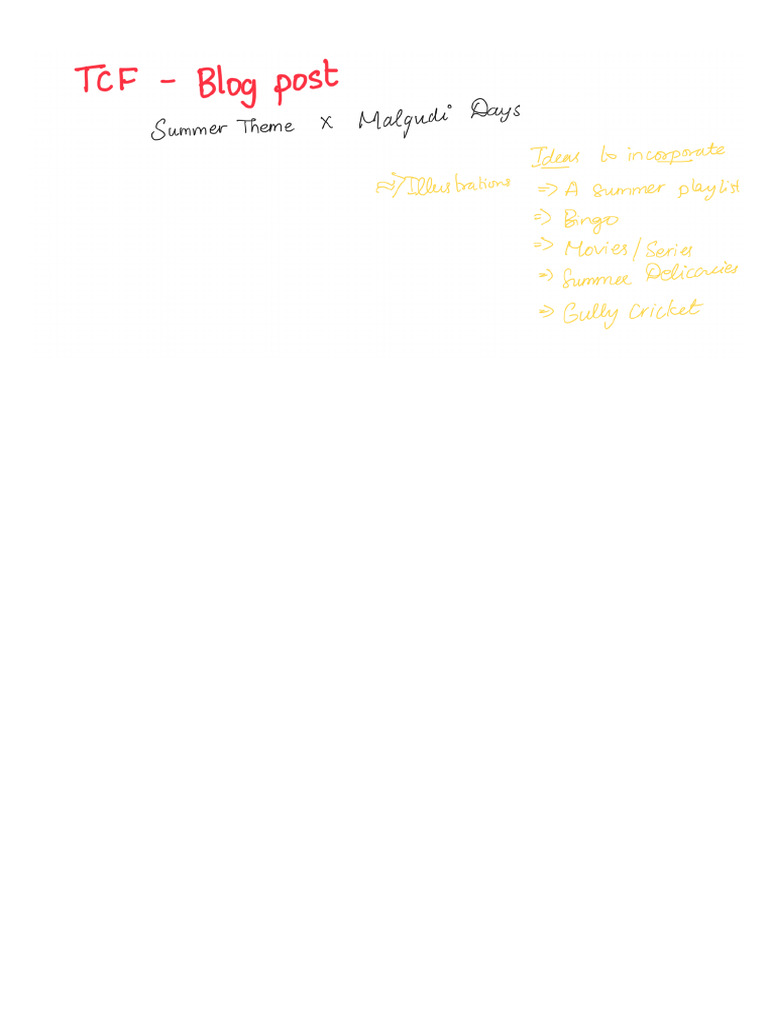 TCF - Blog post
Summer Theme x Malgudi Days
Ideas to incorporate
=> Illustrations
=> A summer playlist
=> Bingo
=> Movies/Series
=> Summer Delicacies
=> Gully Cricket